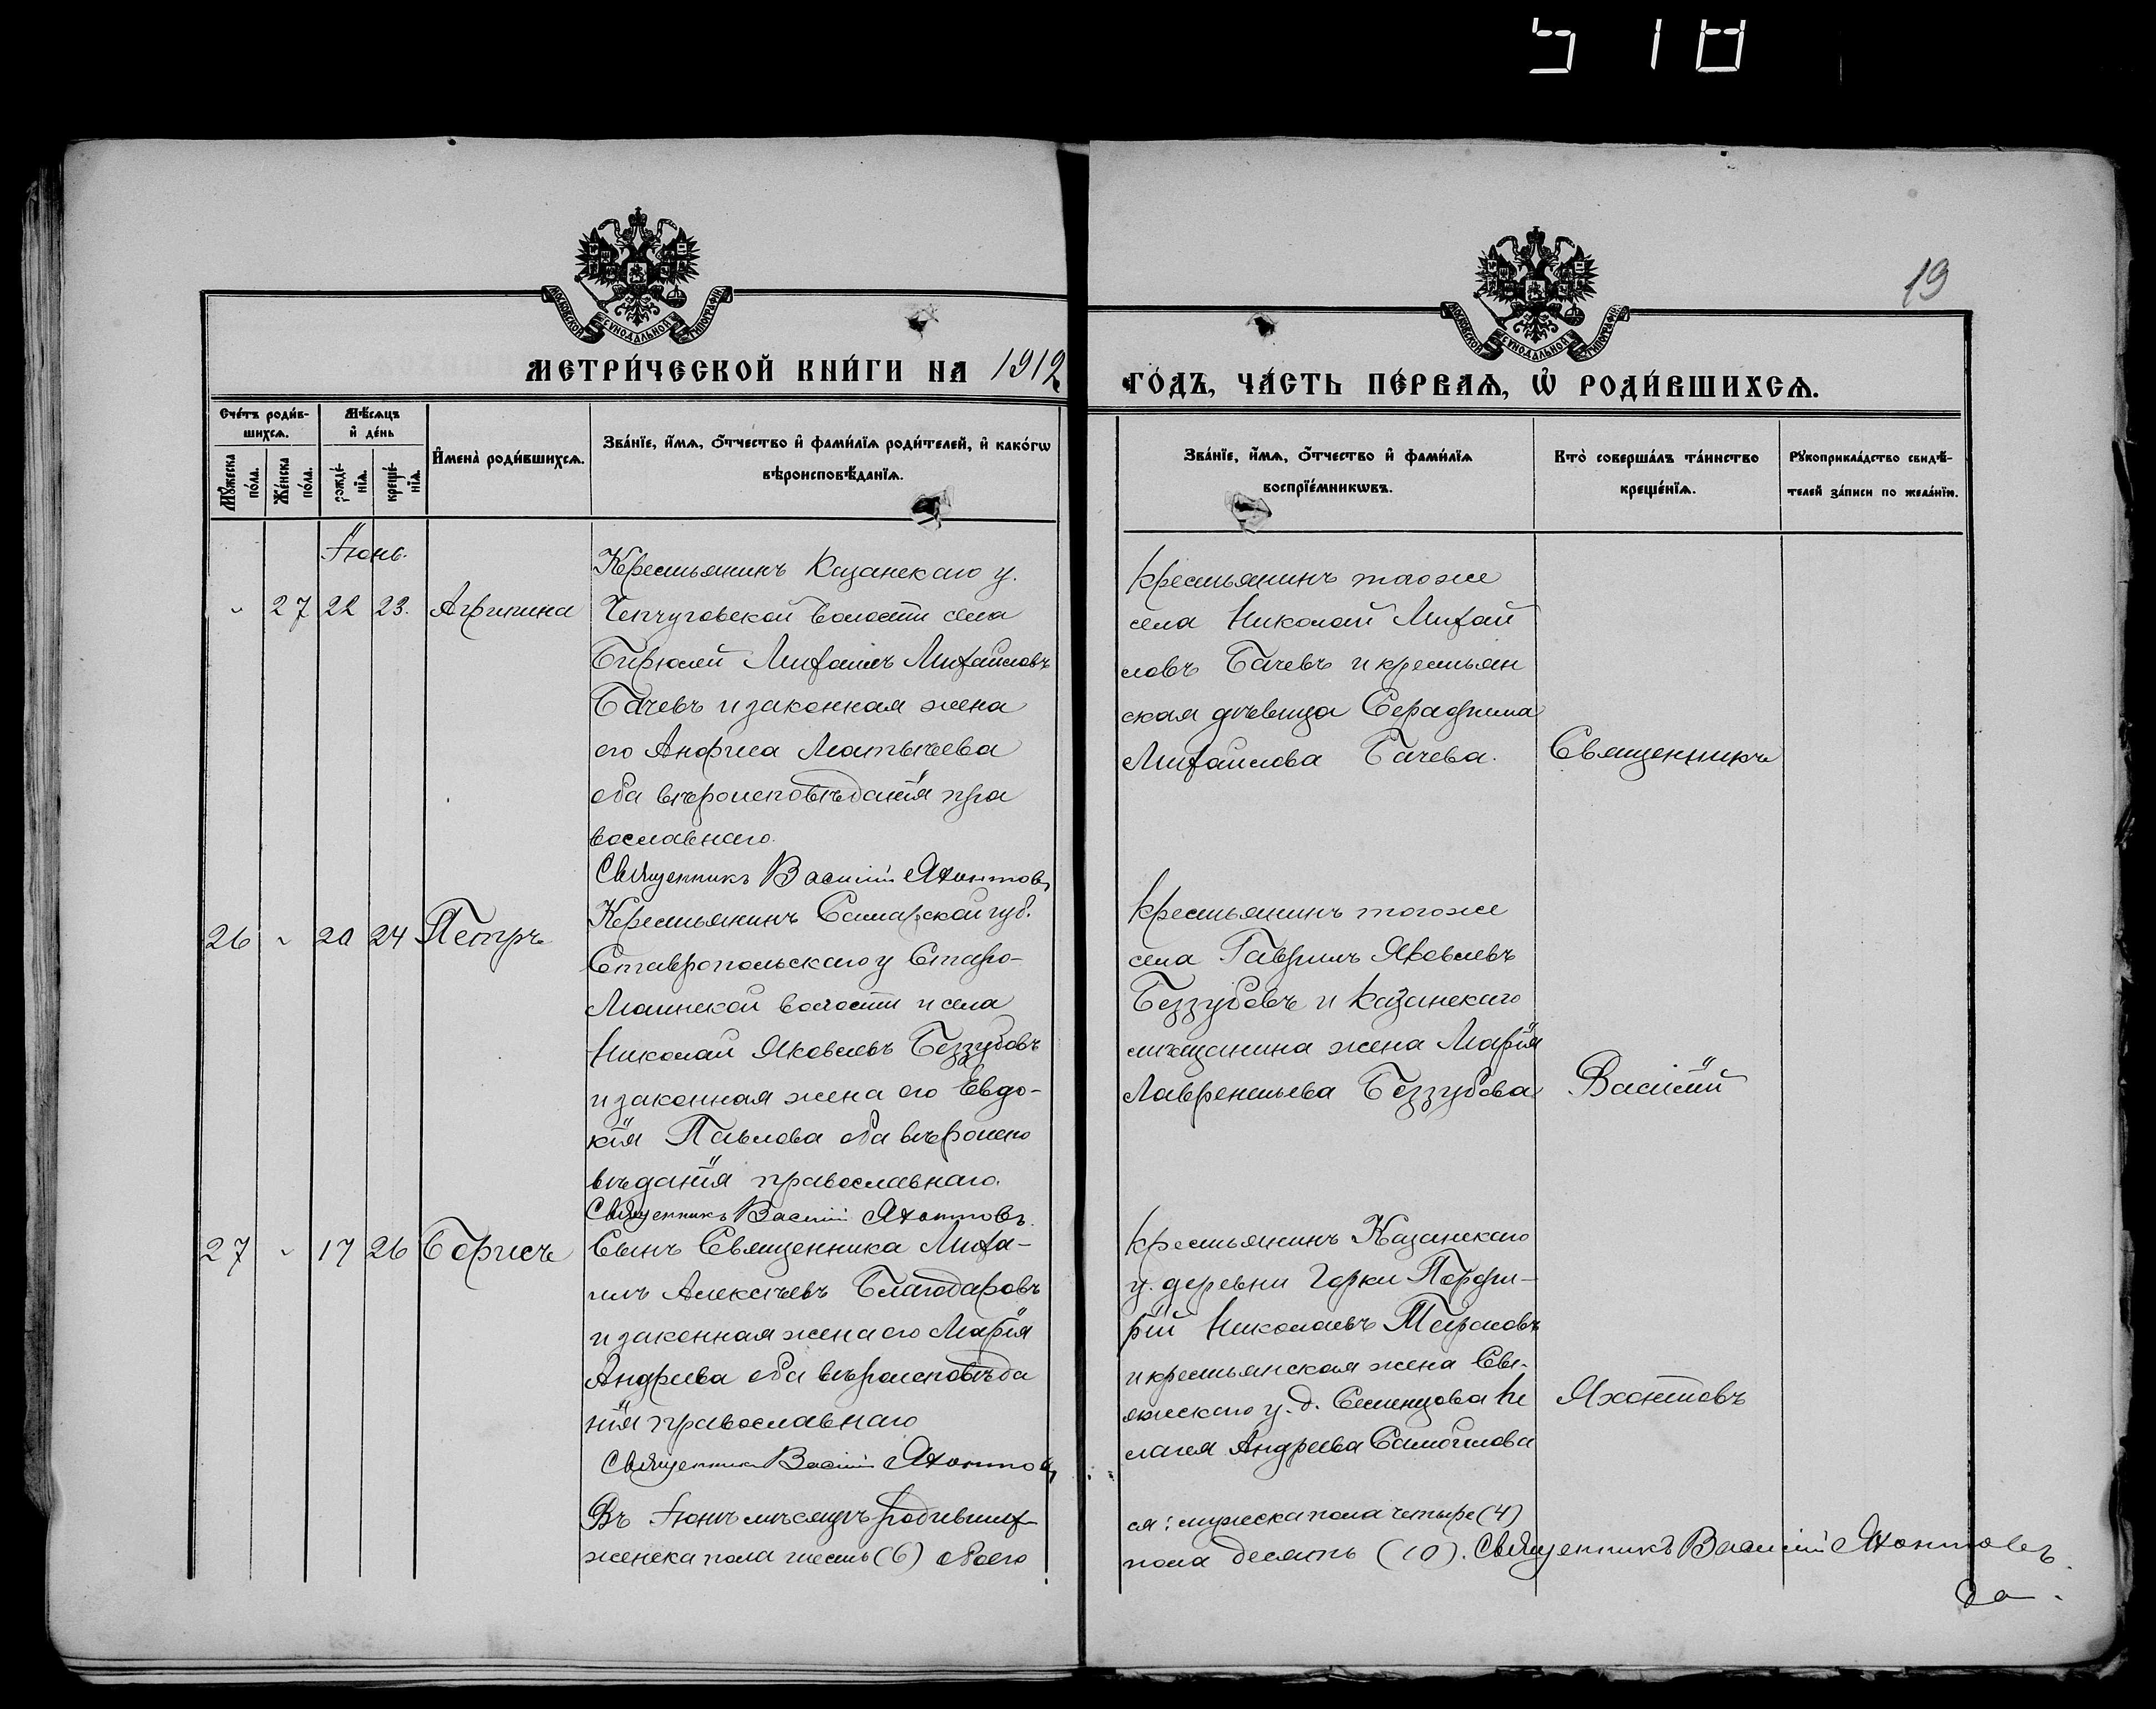 518
19
МОСКОВСКОЙ СУНОДАЛЬНОЙ ТИПОГРАФІИ
МОСКОВСКОЙ СУНОДАЛЬНОЙ ТИПОГРАФІИ
МЕТРИ́ЧЕСКОЙ КНИ́ГИ НА 1912
ГО́ДЪ, ЧА́СТЬ ПЕ́РВАѦ, Ѡ҆ РОДИ́ВШИХСѦ.
Сче́тъ роди́в-
шихсѧ.
Мѣ́сѧцъ
и҆ де́нь
Мꙋ́жеска
по́ла.
Же́нска
по́ла.
рожде́-
нїѧ.
креще́-
нїѧ.
И҆мена̀ роди́вшихсѧ.
Зва́нїе, и҆́мѧ, ѻ҆́тчество и҆ фами́лїѧ роди́телей, и҆ како́гѡ
вѣроисповѣ́данїѧ.
Зва́нїе, и҆́мѧ, ѻ҆́тчество и҆ фами́лїѧ
воспрїе́мникѡвъ.
Кто̀ соверша́лъ та́инство
креще́нїѧ.
Рꙋкоприкла́дство свидѣ́-
телей за́писи по жела́нїю.
Іюнь.
" 27 22 23. Агрипина
Крестьянинъ Казанскаго у.
Чепчуговской волости села
Бирюлей Михаилъ Михаиловъ
Бачевъ и законная жена
его Анфиса Матвѣева
оба вѣроисповѣданія пра
вославнаго.
Священникъ Василій Яхонтовъ
крестьянинъ тогоже
села Николай Михай
ловъ Бачевъ и крестьян
ская дѣвица Серафима
Михаилова Бачева.
Священникъ
26 " 20 24 Петръ
Крестьянинъ Самарской губ.
Ставропольскаго у Старо-
Маинской волости и села
Николай Яковлевъ Беззубовъ
и законная жена его Евдо-
кія Павлова оба вѣроиспо
вѣданія православнаго.
Священникъ Василій Яхонтовъ.
крестьянинъ тогоже
села Гавриилъ Яковлевъ
Беззубовъ и казанскаго
мѣщанина жена Марія
Лаврентьева Беззубова
Василій
27 " 17 26 Борисъ
Сынъ Священника Миха-
илъ Алексѣевъ Благодаровъ
и законная жена его Марія
Андреева оба вѣроисповѣда
нія православнаго
Священникъ Василій Яхонтовъ
крестьянинъ Казанскаго
у. деревни Горки Порфи-
рій Николаевъ
и крестьянская жена Сві-
яжскаго у. д. Семенцова Пе
лагея Андреева Самойлова
Яхонтовъ
Въ Іюнѣ мѣсяцѣ родивших
ся: мужеска пола четыре (4)
женска пола шесть (6) обоего
пола десять (10). Священникъ Василій Яхонтовъ.
да.